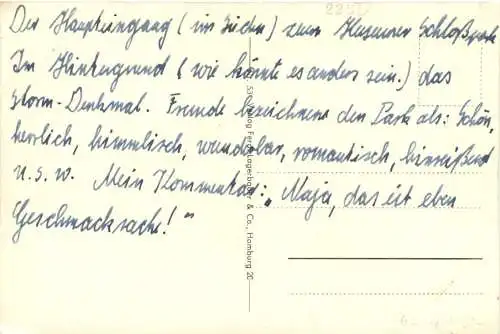 Der Haupteingang (im Süden) zum Husumer Schloßpark
Im Hintergrund (wie könnte es anders sein.) das
Storm-Denkmal. Fremde bezeichnen den Park als: Schön,
herrlich, himmlisch, wunderbar, romantisch, hinreißend
u.s.w. Mein Kommentar: „Naja, das ist eben
Geschmacksache!"
Verlag Ferd. Lagerbauer & Co., Hamburg 20